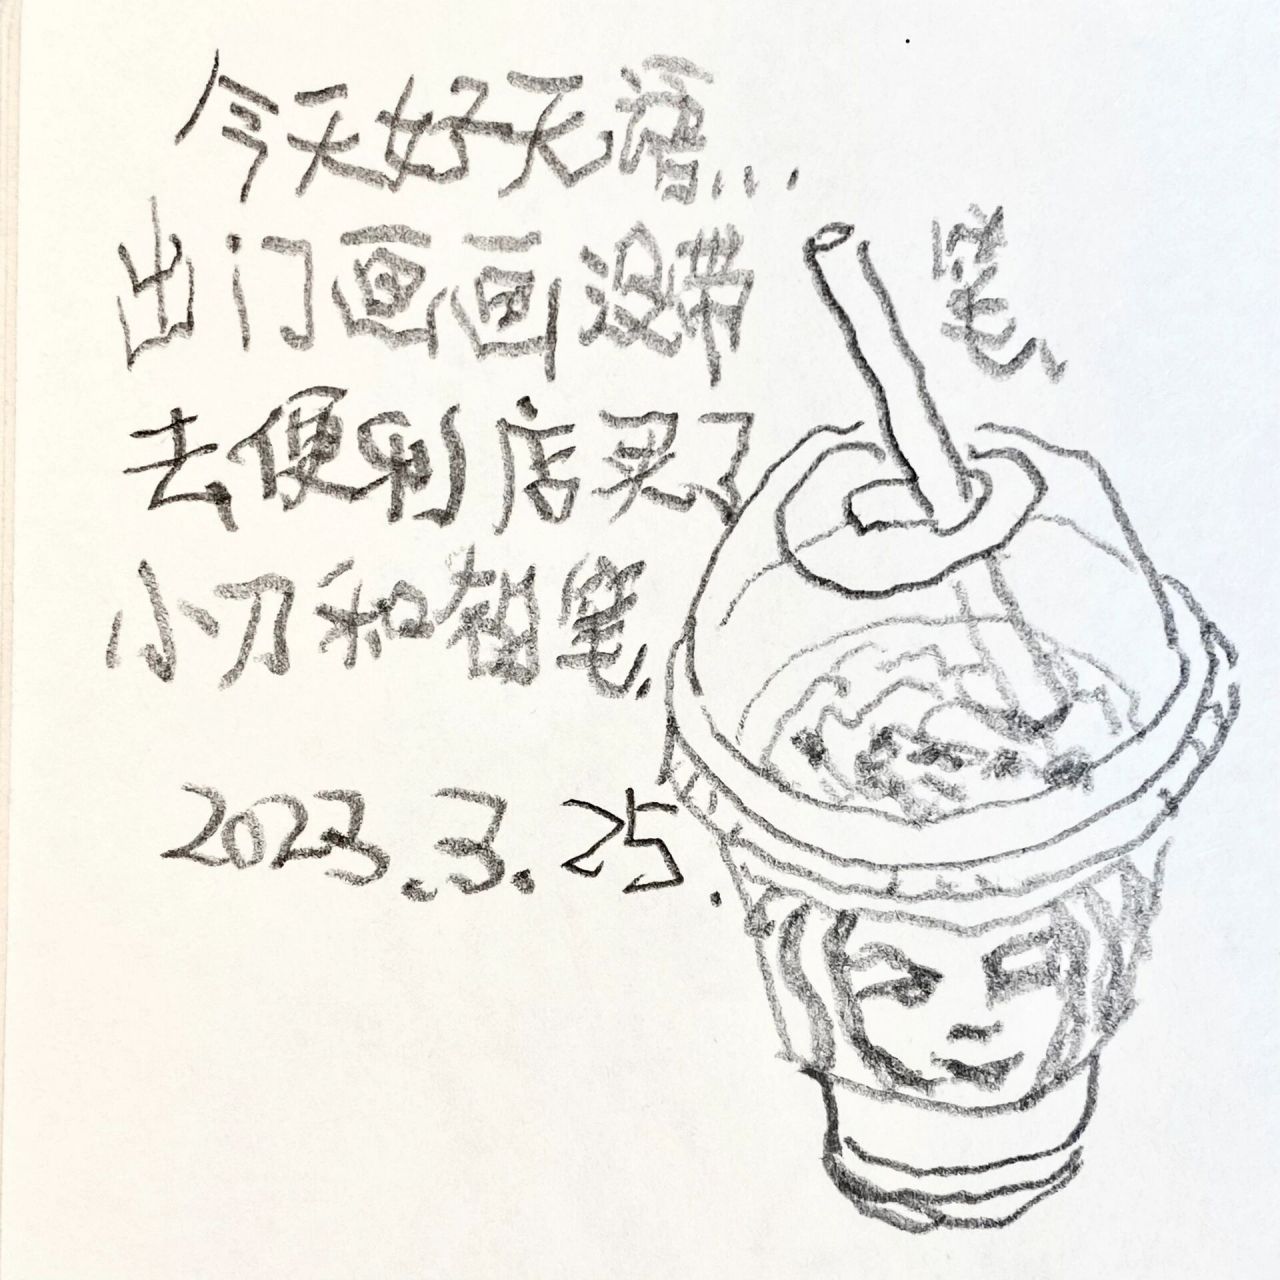 今天好无语...
出门画画没带笔
去便利店买了
小刀和铅笔.
2023.3.25.